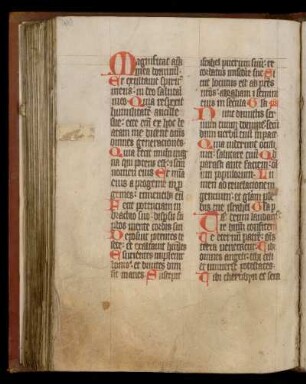 Magnificat ani
ma mea dominū.
Et exultauit spirit᷒
meus: in deo salutari
meo. Quia respexit
humilitatē ancille
sue: ecce eni ex hoc be
atam me dicent om̄s
generationes
Quia fecit michi mag
na qui potens est: sanctū
nomen eius Et mia
eius a progenie in p̱
genies: timentib᷒ eū
Fecit potentiam in
brachio suo: dispsit su
pbos mente cordis sui
Deposuit potentes de
sede: et exaltauit hūiles
Esurientes impleuit
bonis: et diuites dimi
sit inanes Suscepit
israhel puerum suū: re
cordatus misc̄die sue Si
cut locutus est ad pr̄es
nr̄os: abraham et semini
eius in secula Gl̄a
Nunc dimittis ser
uum tuum domine: scd̄m
uerbū tuū in pace
Quia uiderunt oculi
mei: salutare tuū Qd̄
parasti ante faciem: om
niū populorum Lu
men ad reuelationem
gentium: et gl̄iam ple
bis tue israhel Gl̄a p̄
Te deum laudam᷒
te dn̄m confitem᷒
Te eternū patrē: om̄s
terra ueneratur Tibi
omnes angeli: tibi celi
et uniuerse potestates
Tibi cherubyn et sera